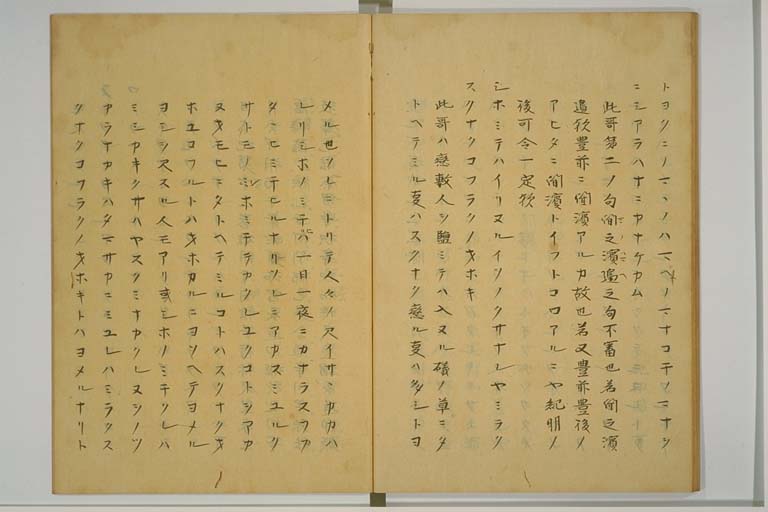 トヨクニノマヽノハマヘノマナコチノマナヲ
ニシアラハナニカナケカム
此哥第二ノ句間之濱邊之句不審也若間之濱
遺欤豊前ニ間濱アルカ故也若又豊前豊後ノ
アヒタニ間濱トイフトコロアルニヤ紀明ノ
後可令一定欤
シホミテハイリヌルイソノクサナレヤミラク
スクナクコフラクノオホキ
此哥ハ戀歎人ヲ塩ミテハ入ヌル礒ノ草ニタ
トヘテミル叓ハスクナク戀ル叓ハ多シトヨ
メル也ソレニトリテ人々ノ
レリシホノミテハ一日一夜ニカナラスフカ
タヒミチヒルナリソレニアカスミユルク
サトモノシホミチテカクレユクコトシアカ
ヌオモヒニタトヘテミルコトハスクナクオ
ホユコフルトハオホカルニヨソヘテヨメル
ヨシシ人モアリ或シホノミチクレハ
ミシカキクサハヤスクミナカクレヌシノツ
アラナカキハタマサカニミユレハミラクス
クナクコフラクノオホキトハヨメルナリト